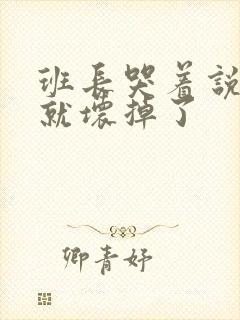 班長哭着說
就壞掉了
卿青妤